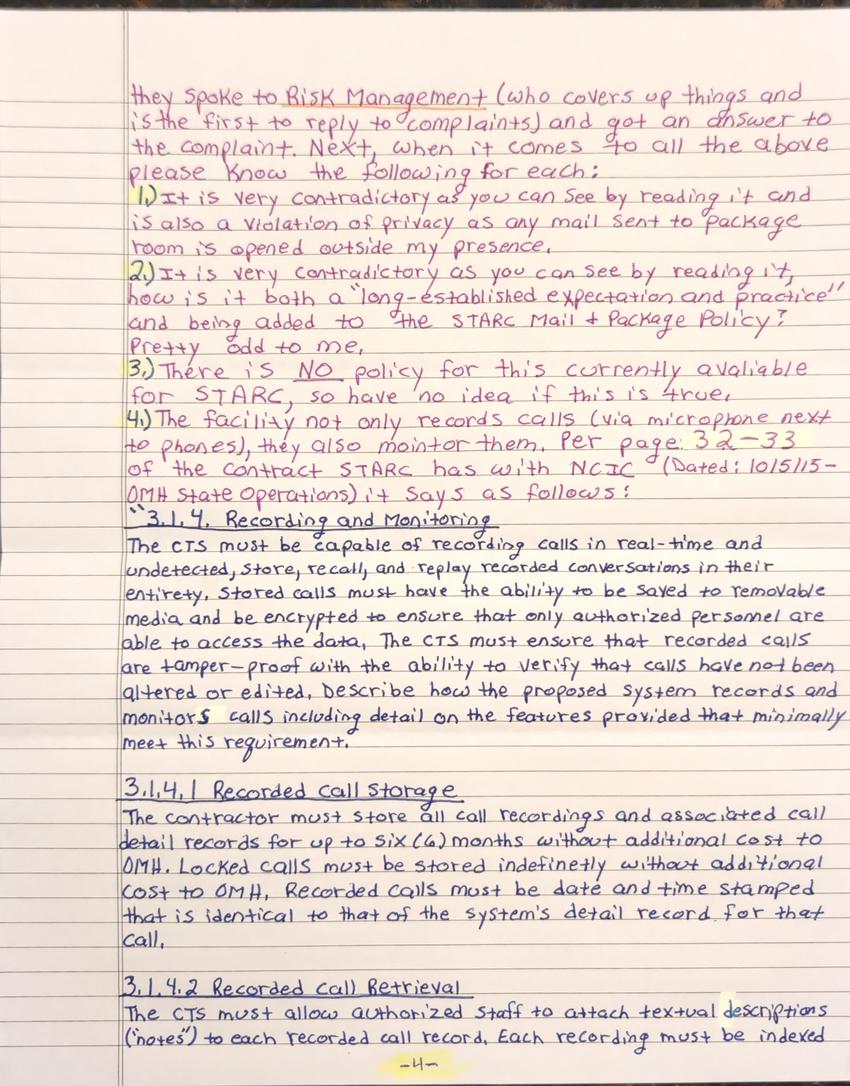 they spoke to Risk Management (who covers up things and
is the first to reply to complaints) and got an answer to
the complaint. Next, when it comes to all the above
please know the following for each:
1.) It is very contradictory as you can see by reading it and
is also a violation of privacy as any mail sent to package
room is opened outside my presence.
2.) It is very contradictory as you can see by reading it,
how is it both a "long-established expectation and practice"
and being added to the STARC Mail + Package Policy?
Pretty odd to me.
3.) There is NO policy for this currently avaliable
for STARC, so have no idea if this is true.
4.) The facility not only records calls (via microphone next
to phones), they also mointor them. Per page: 32-33
of the contract STARC has with NCIC (Dated: 10/5/15-
OMH State Operations) it says as follows:
"3.1.4. Recording and Monitoring
The CTS must be capable of recording calls in real-time and
undetected, store, recall, and replay recorded conversations in their
entirety. Stored calls must have the ability to be saved to removable
media and be encrypted to ensure that only authorized personnel are
able to access the data. The CTS must ensure that recorded calls
are tamper-proof with the ability to verify that calls have not been
altered or edited. Describe how the proposed system records and
monitors calls including detail on the features provided that minimally
meet this requirement.
3.1.4.1 Recorded Call Storage
The contractor must store all call recordings and associated call
detail records for up to six (6) months without additional cost to
OMH. Locked calls must be stored indefinetly without additional
cost to OMH. Recorded calls must be date and time stamped
that is identical to that of the system's detail record for that
call.
3.1.4.2 Recorded Call Retrieval
The CTS must allow authorized staff to attach textual descriptions
("notes") to each recorded call record. Each recording must be indexed
-4-